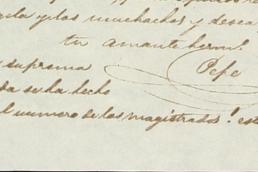 y los muchachos y desea
tu amante herm.
Pepe
suprema
se ha hecho
el numero de los magistrados! est